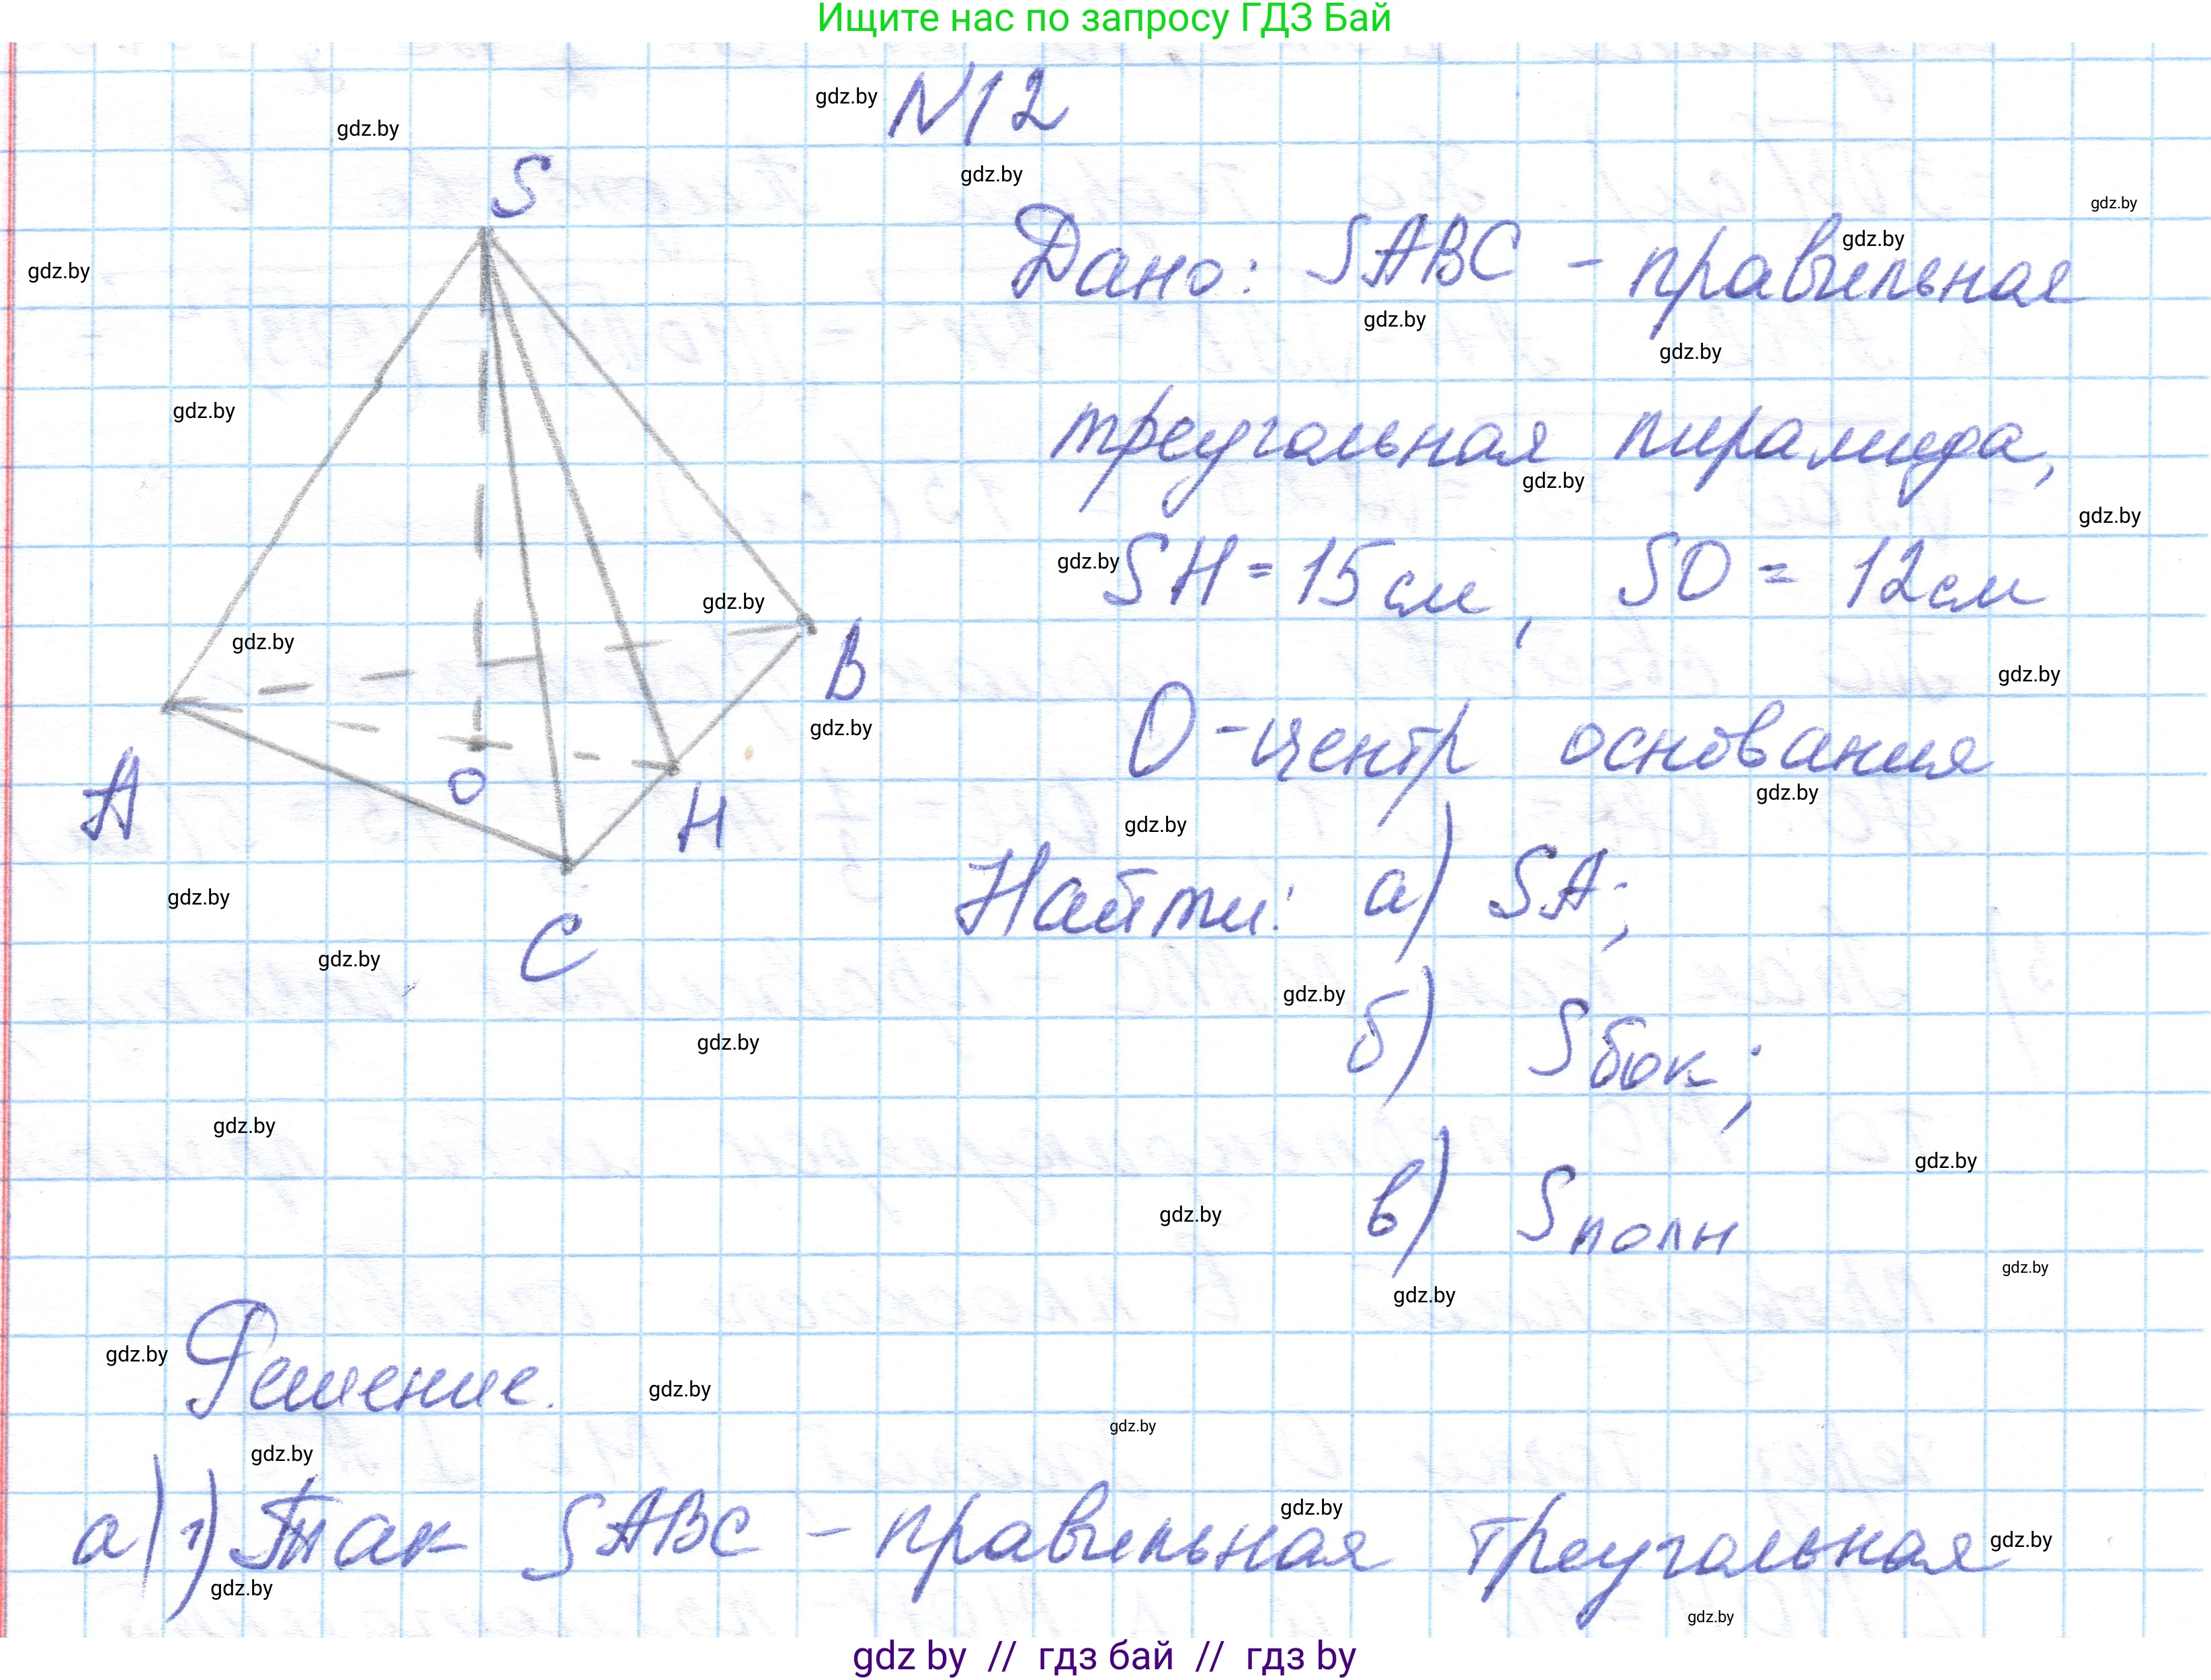 Ищите нас по запросу ГДЗ Бай
N12
gdz.by
gdz.by
gdz.by
S
gdz.by
gdz.by
Дано: SABC - правильная
gdz.by
gdz.by
gdz.by
gdz.by
треугольная пирамида,
gdz.by
gdz.by
gdz.by
SH = 15 см, SO = 12 см
gdz.by
gdz.by
B
gdz.by
gdz.by
O - центр основания
A
O
H
gdz.by
gdz.by
Найти: а) SA;
gdz.by
C
gdz.by
gdz.by
б) Sбок;
gdz.by
gdz.by
gdz.by
в) Sполн
gdz.by
gdz.by
gdz.by
gdz.by
Решение.
gdz.by
gdz.by
gdz.by
gdz.by
а) 1) Так SABC - правильная треугольная
gdz.by
gdz.by
gdz.by
gdz by // гдз бай // гдз by